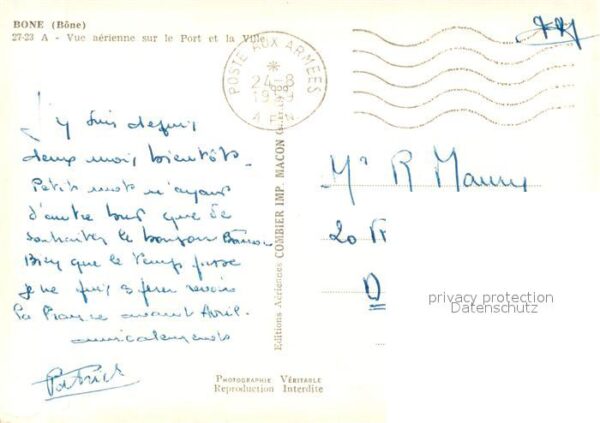 BONE (Bône)
27-23 A - Vue aérienne sur le Port et la Ville
POSTE AUX ARMEES
24-8
1959
A.F.N
J'y suis depuis
deux mois bientôt.
Petit mot n'ayant
d'autre but que de
souhaiter le bonjour
Bien que le temps passe
je ne puis revoir
la France avant Avril.
amicalement
Patrick
Editions Aériennes COMBIER IMP. MACON
Mr R Maury
20
D
privacy protection
Datenschutz
PHOTOGRAPHIE VÉRITABLE
Reproduction Interdite